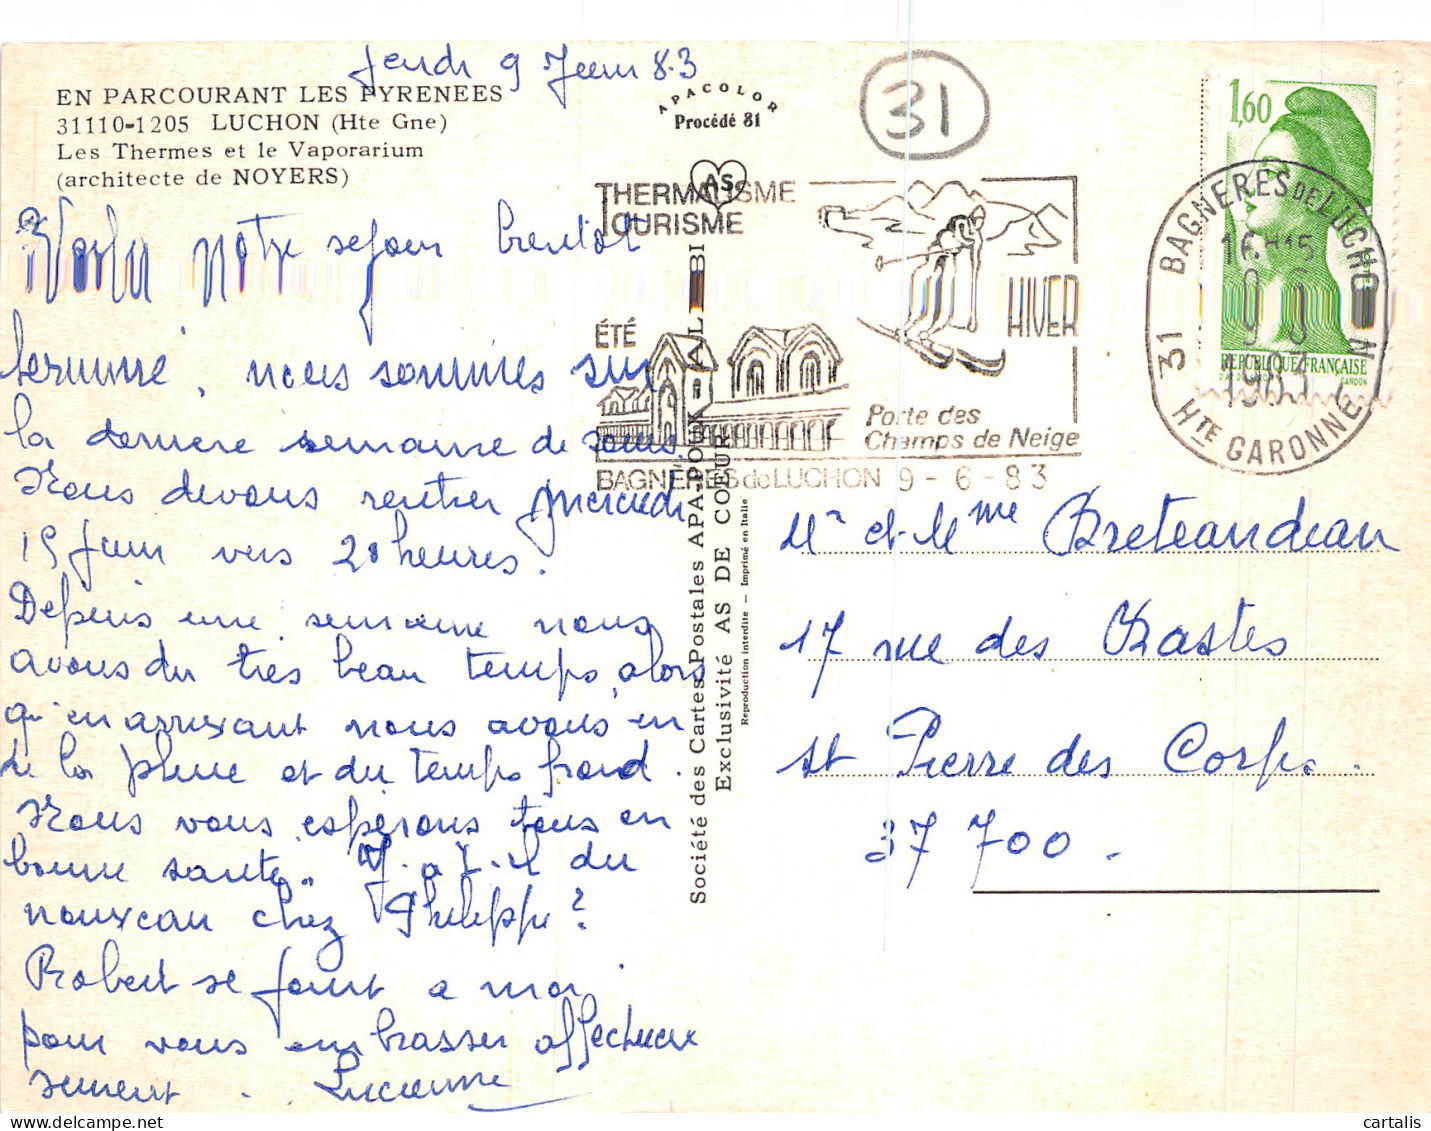 Jeudi 9 Juin 83
EN PARCOURANT LES PYRENEES
31110-1205 LUCHON (Hte Gne)
Les Thermes et le Vaporarium
(architecte de NOYERS)
APACOLOR
Procédé 81
31
1,60
REPUBLIQUE FRANÇAISE
GANDON
BAGNERES DE LUCHON
16H15
9 6
1983
31 HTE GARONNE
AS
THERMALISME
TOURISME
HIVER
ÉTÉ
Porte des
Champs de Neige
BAGNÈRES de LUCHON 9 - 6 - 83
Voila notre sejour bientot
terminé, nous sommes sur
la derniere semaine de soins.
Nous devons rentrer mercredi
15 Juin vers 20 heures.
Depuis une semaine nous
avons du tres beau temps, alors
qu'en arrivant nous avons eu
de la pluie et du temps froid.
Nous vous esperons tous en
bonne santé. Y.a.t.il du
nouveau chez Philippe?
Robert se joint a moi
pour vous embrasser affectueu
sement. Lucienne
Société des Cartes Postales APA-POUX - ALBI
Exclusivité AS DE COEUR
Reproduction interdite - Imprimé en Italie
Mr et Mme Breteaudeau
17 rue des
St Pierre des Corps.
37 700.
cartalis